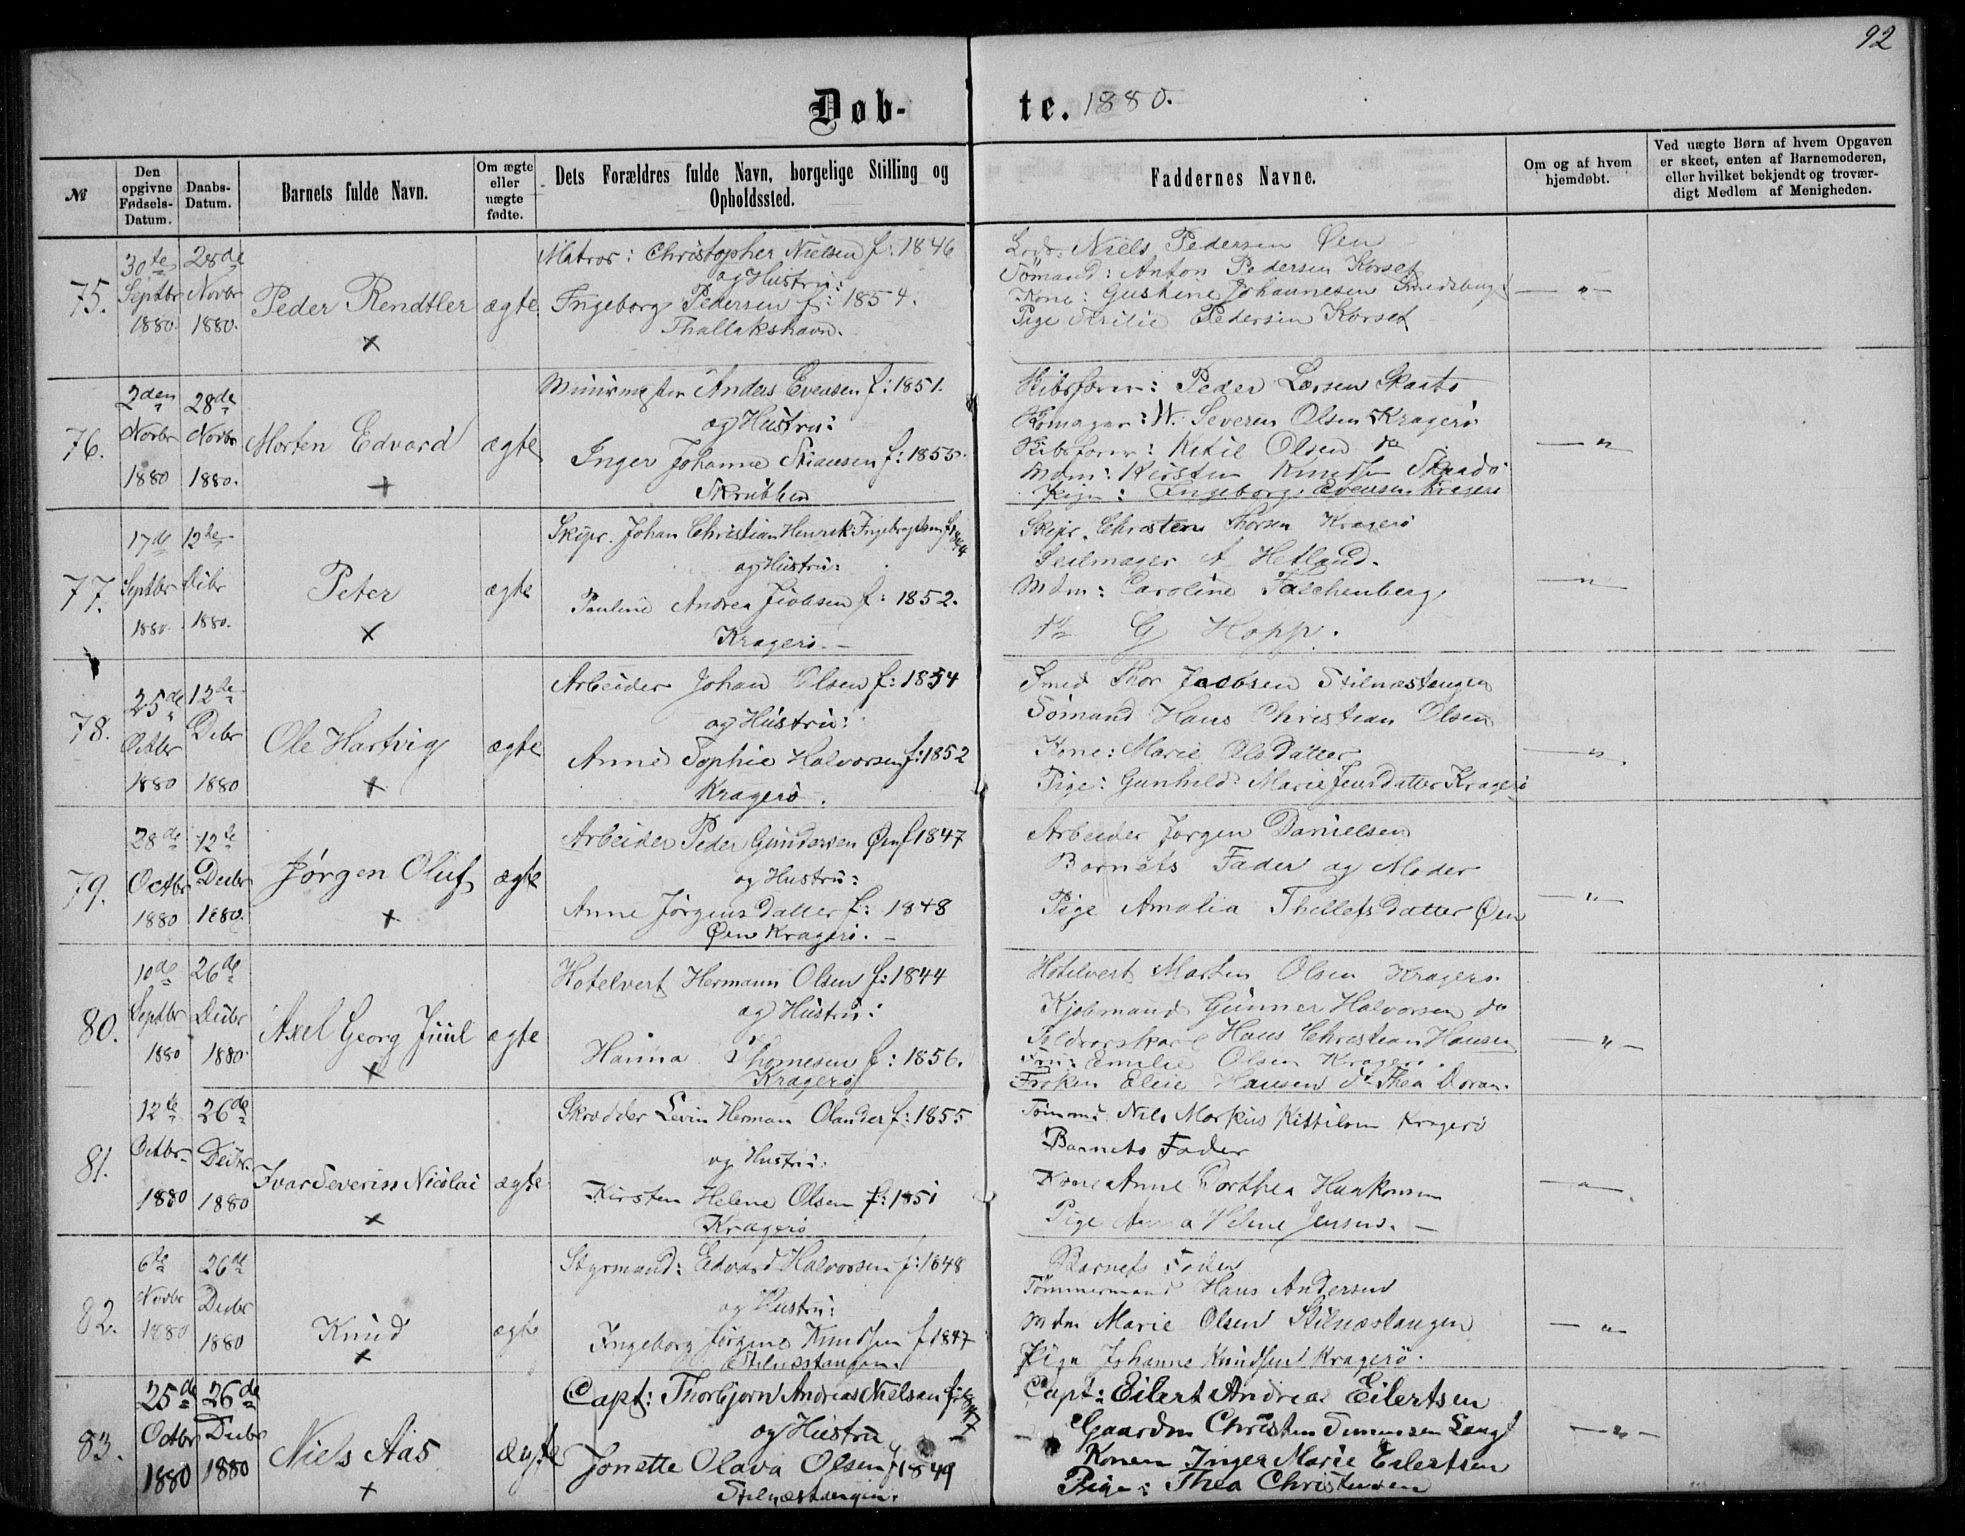 92
Døb-te. 1880.
№
Den opgivne Fødsels-Datum.
Daabs-Datum.
Barnets fulde Navn.
Om ægte eller uægte fødte.
Dets Forældres fulde Navn, borgelige Stilling og Opholdssted.
Faddernes Navne.
Om og af hvem hjemdøbt.
Ved uægte Børn af hvem Opgaven er skeet, enten af Barnemoderen, eller hvilket bekjendt og troværdigt Medlem af Menigheden.
75.
30te Septbr 1880
28de Novbr 1880.
Peder Rendtler
×
ægte
Matros: Christopher Nielsen f: 1846
og Hustru:
Ingeborg Pedersen f: 1854.
Thallakshavn.
Lods. Niels Pedersen Øen
Sömand: Anton Pedersen Korset
Kone: Gustine Johannesen
Pige Pedersen Korset
— " —
76.
2den Novbr 1880
28de Novbr 1880.
Morten Edvard
+
ægte
Anders Evensen f: 1851.
og Hustru:
Inger Johanne Stiansen f: 1855.
Skrubben
Skibsfører: Peder Larsen
W. Severen Olsen Kragerö
Skibsfører: Ketil Olsen do
Mdm: Kirsten Knudsen
Pigen: Ingeborg Evensen Kragerö
— "
77.
17de Septbr 1880.
12te Debr 1880.
Peter
×
ægte
Skipr. Johan Christian Henrik Ingebregtsen
og Hustru:
Pauline Andrea Jicobsen f: 1852.
Kragerö. —
Skipr. Christen Thorsen Kragerö
Seilmager A Hetland.
Mdm: Caroline Faschenberg
do G Hopp.
— " —
78.
25de Octbr 1880
12te Debr 1880
Ole Hartvig
×
ægte
Arbeider Johan Olsen f: 1854
og Hustru:
Anne Sophie Halvorsen f: 1852
Kragerö.
Smed Thor Jacobsen Stilnæstangen
Sömand Hans Christian Olsen
Kone: Marie Olsdatter
Pige: Gunhild Marie Jensdatter Kragerö
— " .
79.
28de Octbr 1880
12te Decbr 1880.
Jörgen Oluf
×
ægte
Arbeider Peder Gundersen Øen f 1847
og Hustru:
Anne Jörgensdatter f: 1848
Øen Kragerö. —
Arbeider Jorgen Danielsen
Barnets Fader og Moder
Pige Amalia Thellefsdatter Øen
— " —
80.
10de Septbr 1880
26de Decbr 1880
Axel Georg Juul
×
ægte
Hotelvert Hermann Olsen f: 1844
og Hustru:
Hanna Thomesen f: 1856.
Kragerö
Hotelvert Morten Olsen Kragerö
Kjöbmand Gunner Halvorsen do
Hans Christian Hansen
Fru: Emilie Olsen Kragerö.
Froken Elise Hansen do Thea Doran.
— " —
81.
12te Octbr 1880
26de Decbr. 1880
Ivar Severin Nicolai
×
ægte
Skrædder Levin Herman Olander f: 1855
og Hustru:
Kirsten Helene Olsen f: 1851
Kragerö
Nils Markus Kittilsen Kragerö
Barnets Fader
Kone Anne Dorthea Haakonsen
Pige Anna Helene Jensens. —
— " — .
82.
6te Novbr 1880
26de Decbr 1880
Knud
×
ægte
Styrmand: Edvard Halvorsen f: 1848
og Hustru:
Ingeborg Jörgine Knudsen f 1847
Stilnæstangen.
Barnets Fader
Tömmermand Hans Andersen
Mdm Marie Olsen Stilnæstangen
Pige Johanne Knudsen Kragerö.
— " —
83.
25de Octbr 1880
26de Decbr 1880
Niels Aas
+
ægte
Capt: Thorbjorn Andreas Nielsen f: 1847
og Hustru
Jonette Olava Olsen f 1849
Stilnæstangen.
Capt: Eilert Andreas Eilertsen
Gaardm Christen Simonsen
Konen Inger Marie Eilertsen
Pige: Thea Christensen
— " —